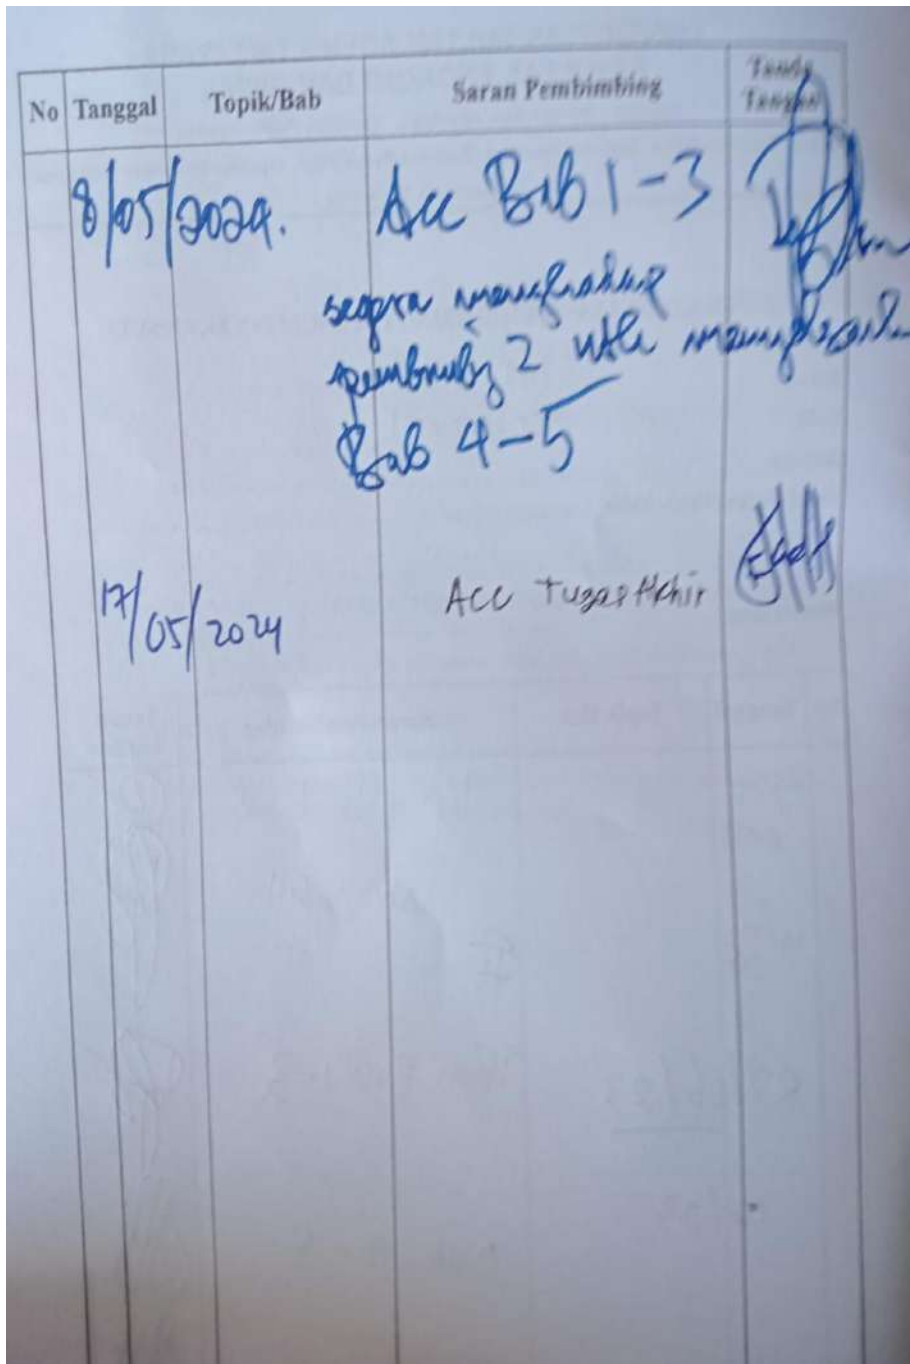 No Tanggal Topik/Bab Saran Pembimbing Tanda Tangan
8/05/2024. Acc Bab 1-3
segera menghadap
pembimbing 2 utk
Bab 4-5
17/05/2024 ACC Tugas Akhir